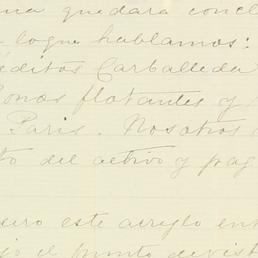 ma quedara concl
logue hablamos:
éditos Carballeda
Zonas flotantes y
Paris. Nosotros
to del activo y pag
ero este arreglo ent
jo el punto de vist